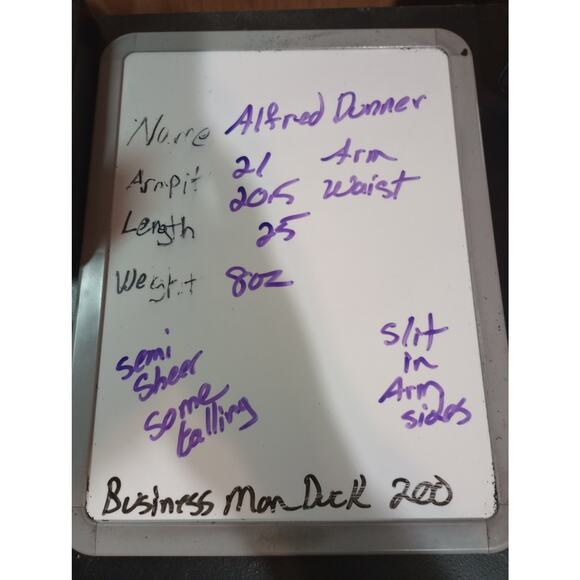 Name Alfred Dunner
Armpit 21 Arm
20.5 Waist
Length 25
Weight 8oz
semi
Sheer
some
talling
Slit
in
Arm
sides
Business Man Duck 200